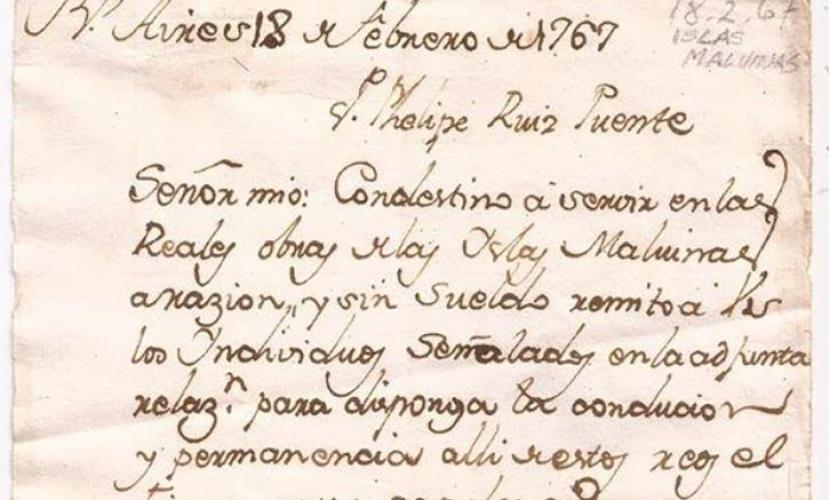 Bs. Aires 18 de Febrero de 1767
18.2.67
ISLAS
MALVINAS
Dn. Phelipe Ruiz Puente
Señor mio: Condestino a servir en las
Reales obras de las Yslas Malvinas
a razion, y sin sueldo remito a Vs
los Yndividuos Señalados en la adjunta
relazn. para disponga la conducion
y permanencia alli de estos reos el